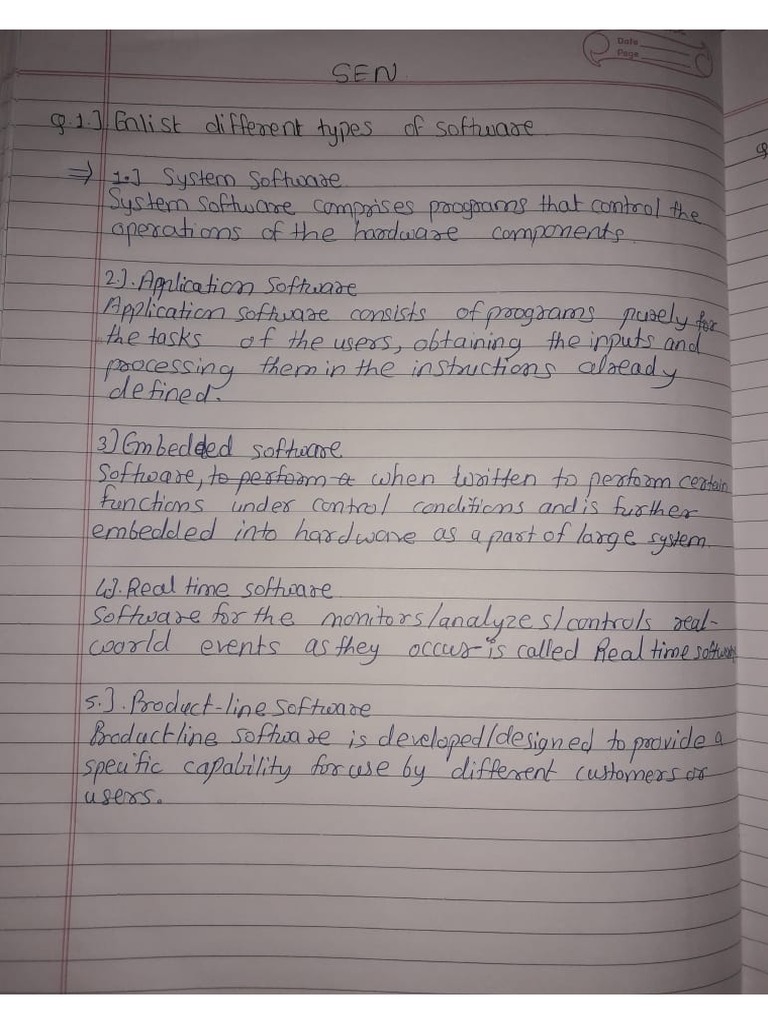 Date
Page
SEN
Q.1.] Enlist different types of software
⇒ 1.] System Software
System software comprises programs that control the
operations of the hardware components.
2.]. Application Software
Application software consists of programs purely for
the tasks of the users, obtaining the inputs and
processing them in the instructions already
defined.
3] Embedded software
Software, to perform a when written to perform certain
functions under control conditions and is further
embedded into hardware as a part of large system.
4]. Real time software
Software for the monitors/analyzes/controls real-
world events as they occur is called Real time software
5.]. Product-line Software
Productline software is developed/designed to provide a
specific capability for use by different customers or
users.